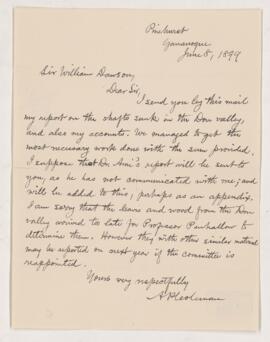 Pinehurst
Gananoque
June 8, 1899
Sir William Dawson,
Dear Sir,
I send you by this mail
my report on the shafts sunk in the Don valley,
and also my accounts. We managed to get the
most necessary work done with the sum provided.
I suppose that Dr. Ami's report will be sent to
you, as he has not communicated with me; and
will be added to this, perhaps as an appendix.
I am sorry that the leaves and wood from the Don
valley arrived too late for Professor Penhallow to
determine them. However they with other similar material
may be reported on next year if the committee is
reappointed.
Yours very respectfully
A. P. Coleman